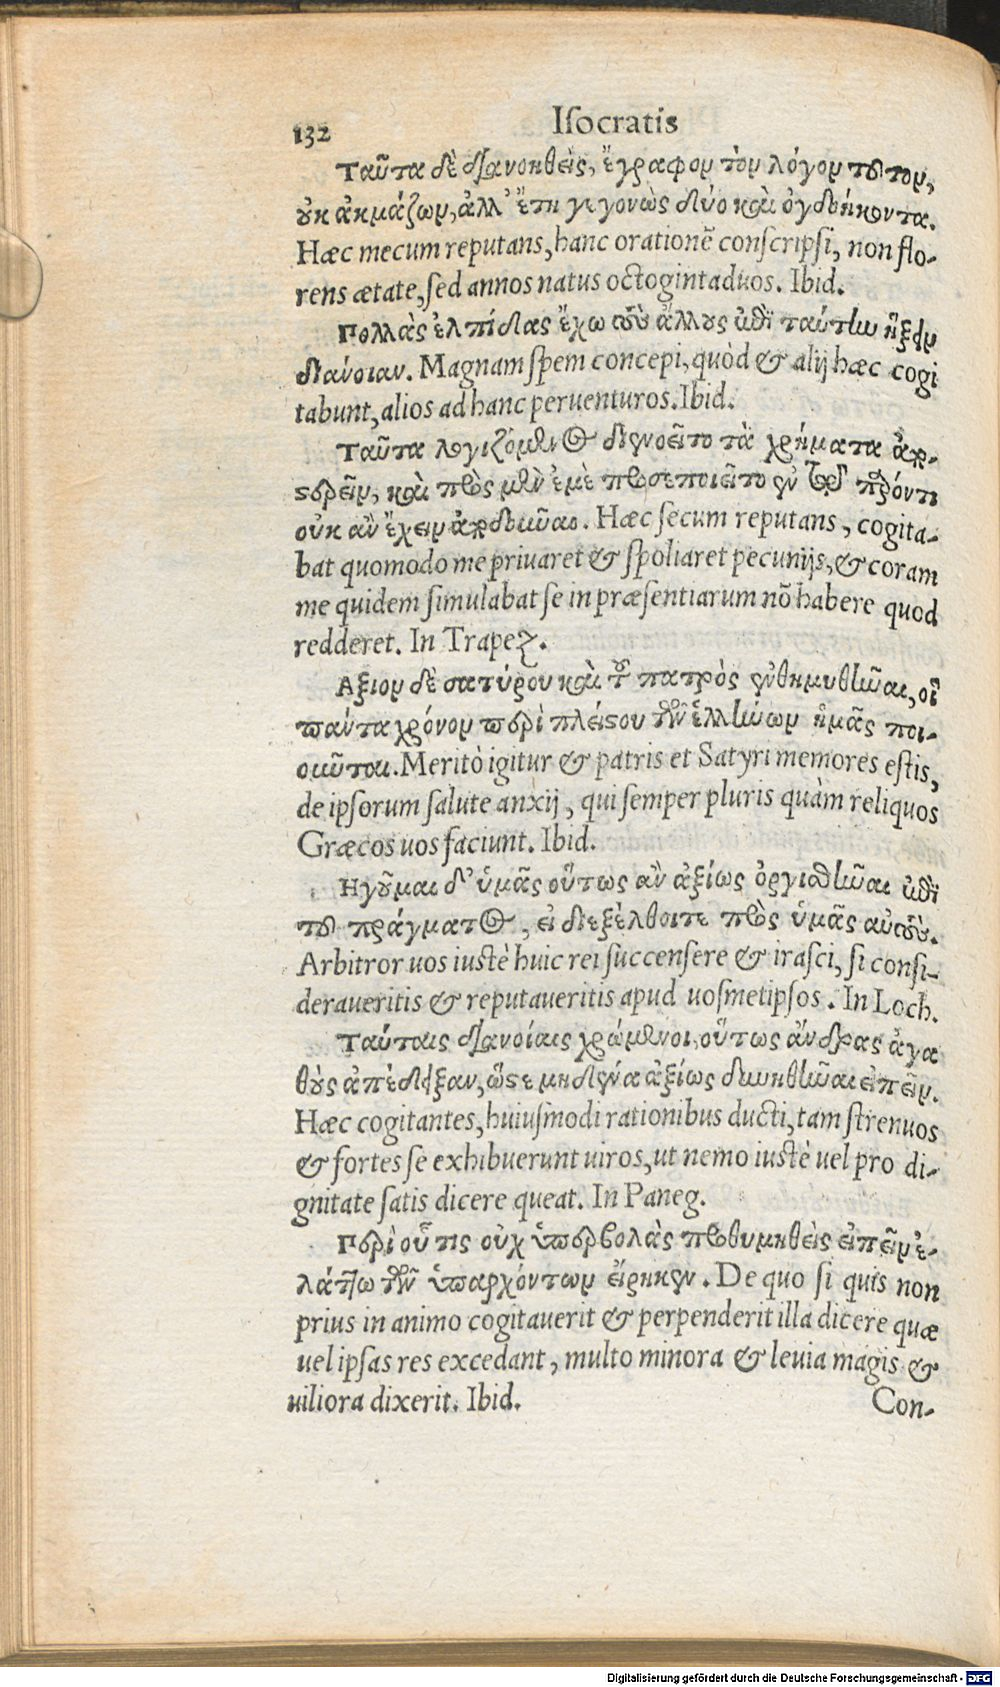 132 Iſocratis
Ταῦτα δὲ διανοηθεὶς, ἔγραφον τὸν λόγον τοῦτον,
οὐκ ἀκμάζων, ἀλλ' ἔτη γεγονὼς δύο καὶ ὀγδοήκοντα.
Hæc mecum reputans, hanc orationē conſcripſi, non flo-
rens ætate, ſed annos natus octogintaduos. Ibid.
Πολλὰς ἐλπίδας ἔχω τοὺς ἄλλους ἐπὶ ταύτην ἥξειν
διάνοιαν. Magnam ſpem concepi, quòd & alij hæc cogi
tabunt, alios ad hanc peruenturos. Ibid.
Ταῦτα λογιζόμενος διενοεῖτο τὰ χρήματα ἀπο-
στερεῖν, καὶ πρὸς μὲν ἐμὲ προσεποιεῖτο ἐν τῷ παρόντι
οὐκ ἂν ἔχειν ἀποδοῦναι. Hæc ſecum reputans, cogita-
bat quomodo me priuaret & ſpoliaret pecunijs, & coram
me quidem ſimulabat ſe in præſentiarum nō habere quod
redderet. In Trapez.
Αξιον δὲ σατύρου καὶ τοῦ πατρὸς ἐνθυμηθῆναι, οἳ
πάντα χρόνον περὶ πλείστου τῶν ἑλλήνων ἡμᾶς ποι-
οῦνται. Meritò igitur & patris et Satyri memores eſtis,
de ipſorum ſalute anxij, qui ſemper pluris quàm reliquos
Græcos uos faciunt. Ibid.
Ηγοῦμαι δ' ὑμᾶς οὕτως ἂν ἀξίως ὀργισθῆναι ἐπὶ
τοῦ πράγματος, εἰ διεξέλθοιτε πρὸς ὑμᾶς αὐτούς.
Arbitror uos iuſtè huic rei ſuccenſere & iraſci, ſi conſi-
deraueritis & reputaueritis apud uoſmetipſos. In Loch.
Ταύταις διανοίαις χρώμενοι, οὕτως ἄνδρας ἀγα
θοὺς ἀπέδειξαν, ὥστε μηδένα ἀξίως δυνηθῆναι εἰπεῖν.
Hæc cogitantes, huiuſmodi rationibus ducti, tam ſtrenuos
& fortes ſe exhibuerunt uiros, ut nemo iuſtè uel pro di-
gnitate ſatis dicere queat. In Paneg.
Περὶ οὗ τις οὐχ ὑπερβολὰς προθυμηθεὶς εἰπεῖν ἐ-
λάττω τῶν ὑπαρχόντων εἴρηκεν. De quo ſi quis non
prius in animo cogitauerit & perpenderit illa dicere quæ
uel ipſas res excedant, multo minora & leuia magis &
uiliora dixerit. Ibid. Con-
Digitalisierung gefördert durch die Deutsche Forschungsgemeinschaft - DFG